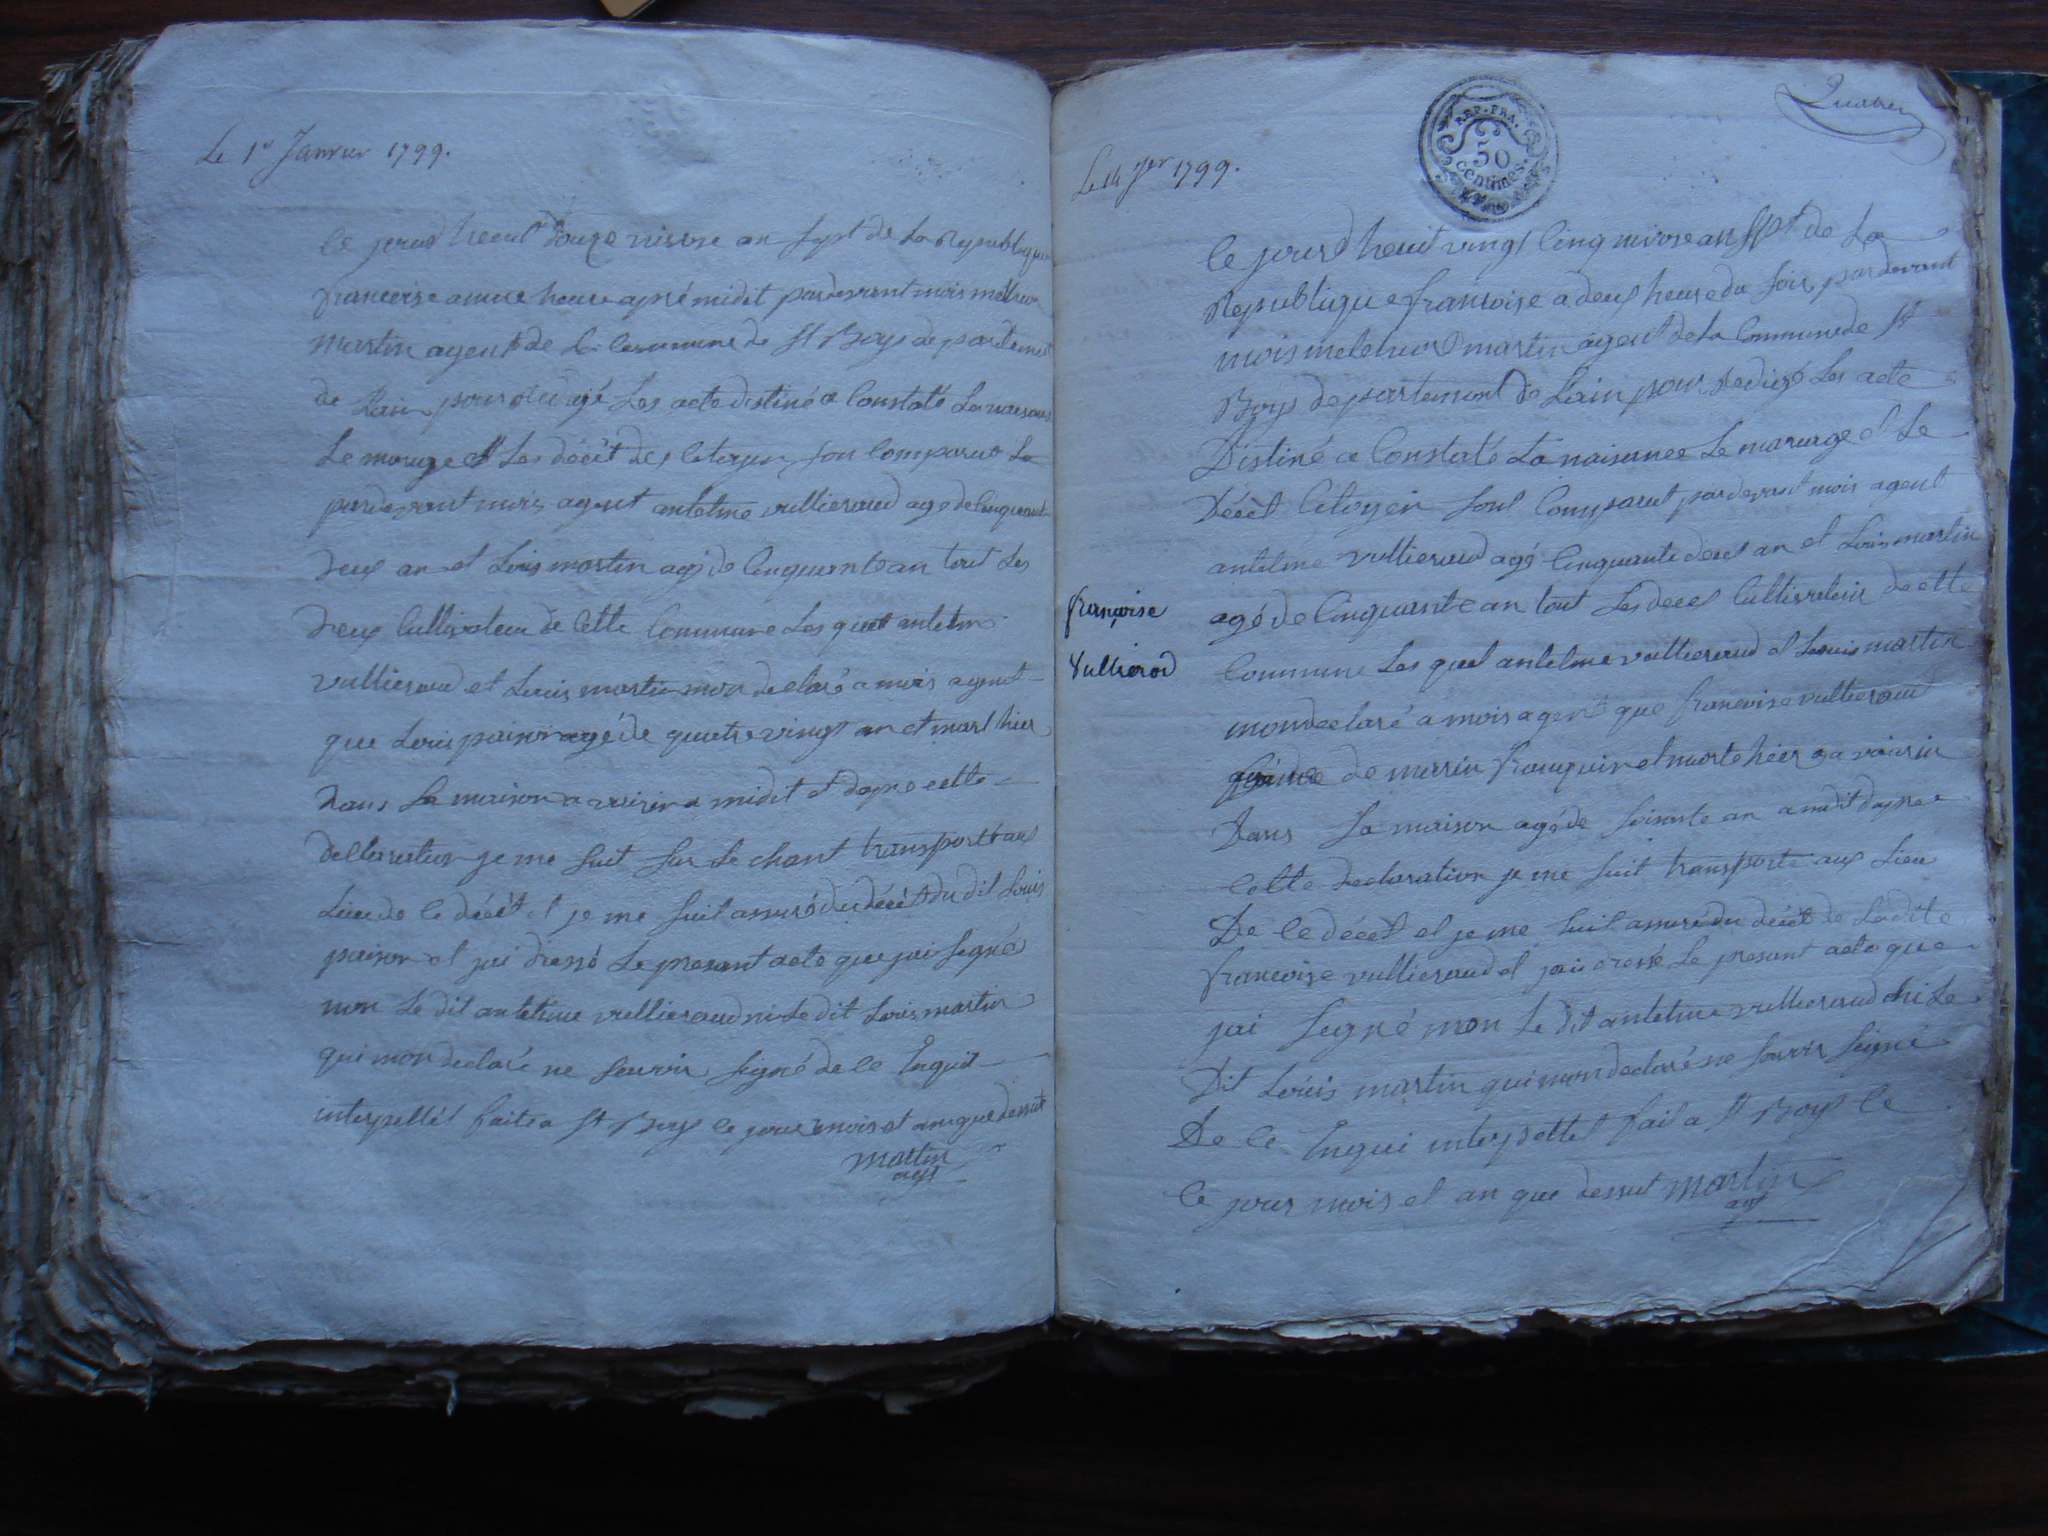 Le 1er Janvier 1799.
Ce jourd heuit douze nivose an sept de La Republique
francoise a une heure apré midit pardevant mois melheor
martin agent de la Commune de St Boys departement
de Lain pour redigé Les acte destiné a Constaté La naisance
Le mariage et Les décét des Citoyen son Comparut
pardevant mois agent antelme vullieraud agé de Cinquant
deux an et Louis martin agé de Cinquante an tout Les
deux Cultivateur de Cette Commune Les quel antelme
vullieraud et Louis martin mon declaré a mois agent
que Louis agé de quatre vingt an et mort hier
dans Sa maison a a midit et dapré cette
declaration je me suit sur Le chant transporté aux
Lieu de ce décét et je me suit assuré du décét du dit Louis
et jai dressé Le presant acte que jai Segné
non Le dit antelme vullieraud ni Le dit Louis martin
qui mon declaré ne Savoir Segné de ce Enquit
interpellét fait a St Boys ce jour mois et an que dessut
martin
agt
REP. FRA.
50
centimes.
Quatre
Le 14 Jer 1799.
Ce jourd heuit vingt Cinq nivose an sept de La
Republique francoise a deux heure du soir pardevant
mois melcheor martin agent de la Commune de St
Boys departement de Lain pour Redigé Les acte
Destiné a Constaté La naisance Le mariage et Le
Décét Citoyen sont Comparut pardevant mois agent
antelme vullieraud agé Cinquante deux an et Louis martin
françoise
agé de Cinquante an tout Les deux Cultivateur de cette
Vullierod
Commune Les quel antelme vullieraud et Louis martin
mon declaré a mois agent que francoise vullieraud
de marin franquin et morte hier a
Dans Sa maison agé de soisante an a midit dapré
Cette declaration je me suit transporté aux Lieu
De Ce décét et je me suit assuré du décét de Ladite
francoise vullieraud et jai dressé Le presant acte que
jai Segné non Le dit antelme vullieraud ni Le
Dit Louis martin qui mon declaré ne savoir Seigné
De Ce Enquit interpellét fait a St Boys le
Ce jour mois et an que dessut martin
agt